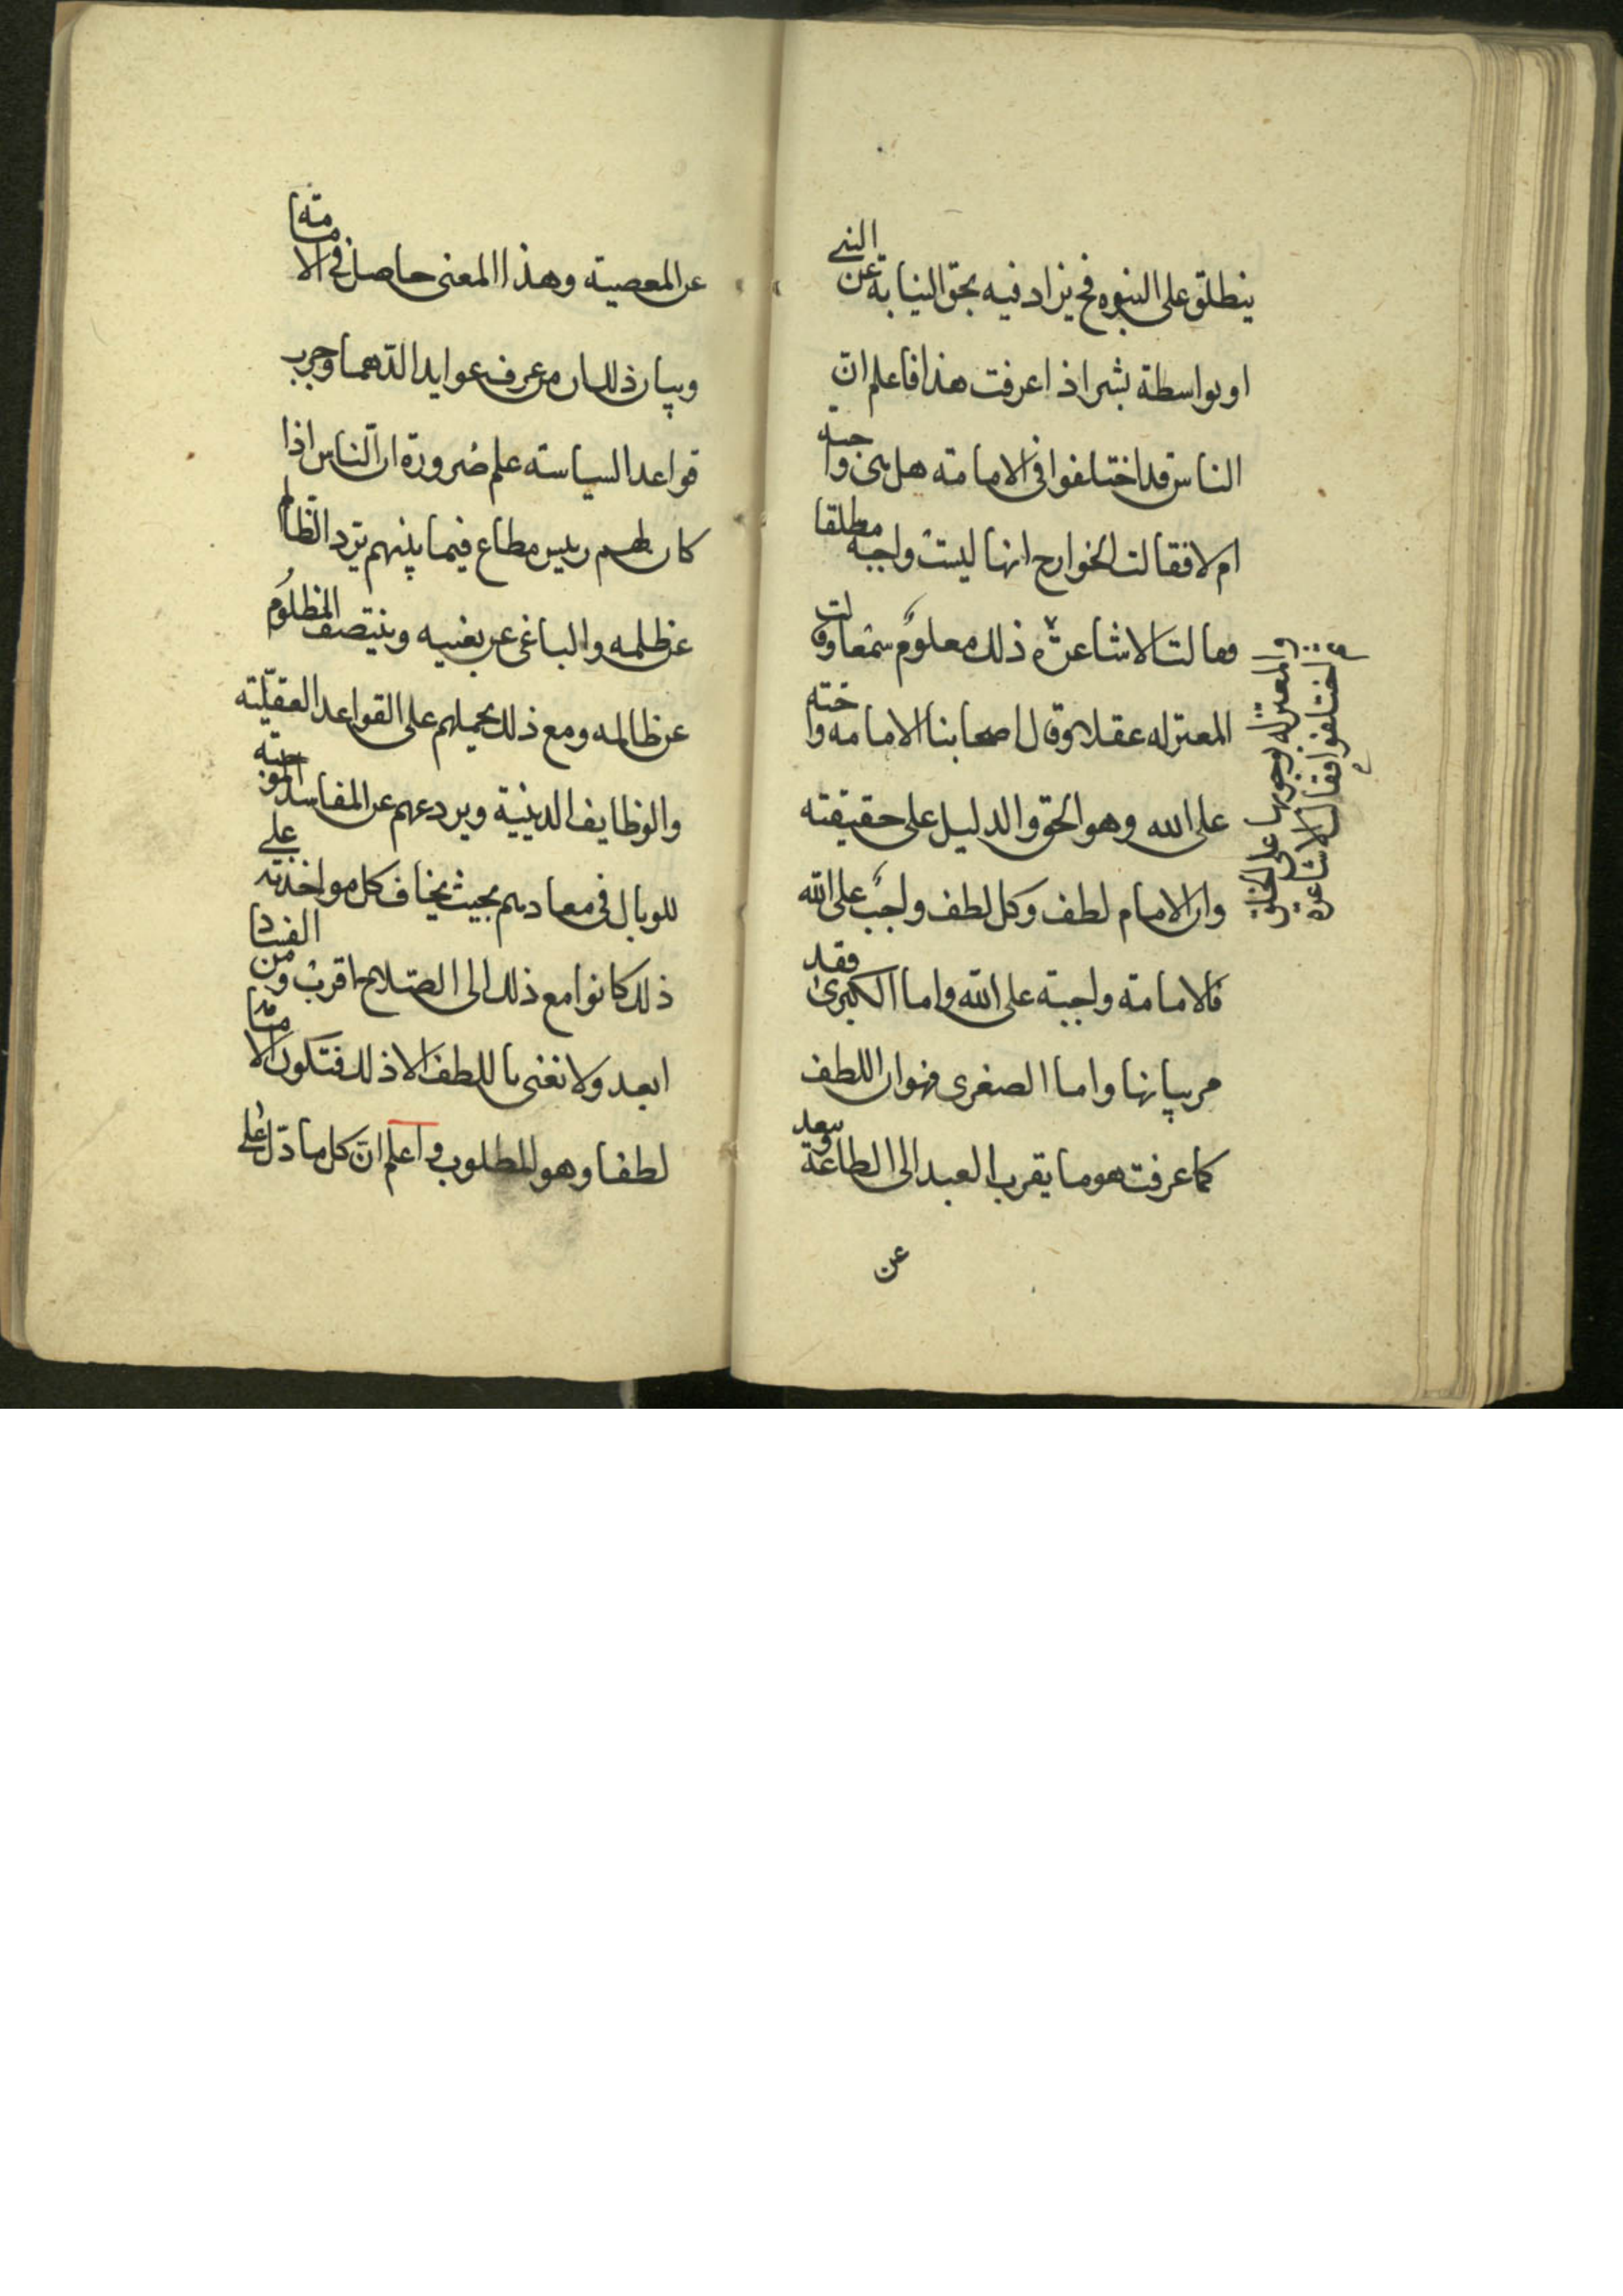 ينطلق على النبوه فح يزاد فيه بحق النيابة عن النبي
او بواسطة بشر اذا عرفت هذا فاعلم ان
الناس قد اختلفوا في الامامة هل هي واجبة
ام لا فقالت الخوارج انها ليست واجبه مطلقا
وقالت الاشاعرة ذلك معلوم سمعا وقالت
المعتزله عقلا وقال اصحابنا الامامه واجبة
على الله وهو الحق والدليل على حقيقته
وان الامام لطف وكل لطف واجب على الله
فالامامة واجبة على الله واما الكبرى فقد
مر بيانها واما الصغرى فهو ان اللطف
كما عرفت هو ما يقرب العبد الى الطاعة ويبعد
عن
اختلفوا فقالت الاشاعرة
والمعتزله بوجوبها على الخلق
عن المعصية وهذا المعنى حاصل في الامامة
وبيان ذلك ان من عرف عوايد الدهما وجرب
قواعد السياسة علم ضرورة ان الناس اذا
كان لهم رييس مطاع فيما بينهم يرد الظالم
عن ظلمه والباغى عن بغيه وينتصف المظلوم
عن ظالمه ومع ذلك يحملهم على القواعد العقلية
والوظايف الدينية ويردعهم عن المفاسد الموجبة
للوبال في معادهم بحيث يخاف كل مواخذته على
ذلك كانوا مع ذلك الى الصلاح اقرب ومن الفساد
ابعد ولا نغنى باللطف الا ذلك فتكون الامامة
لطفا وهو المطلوب واعلم ان كل ما دل على